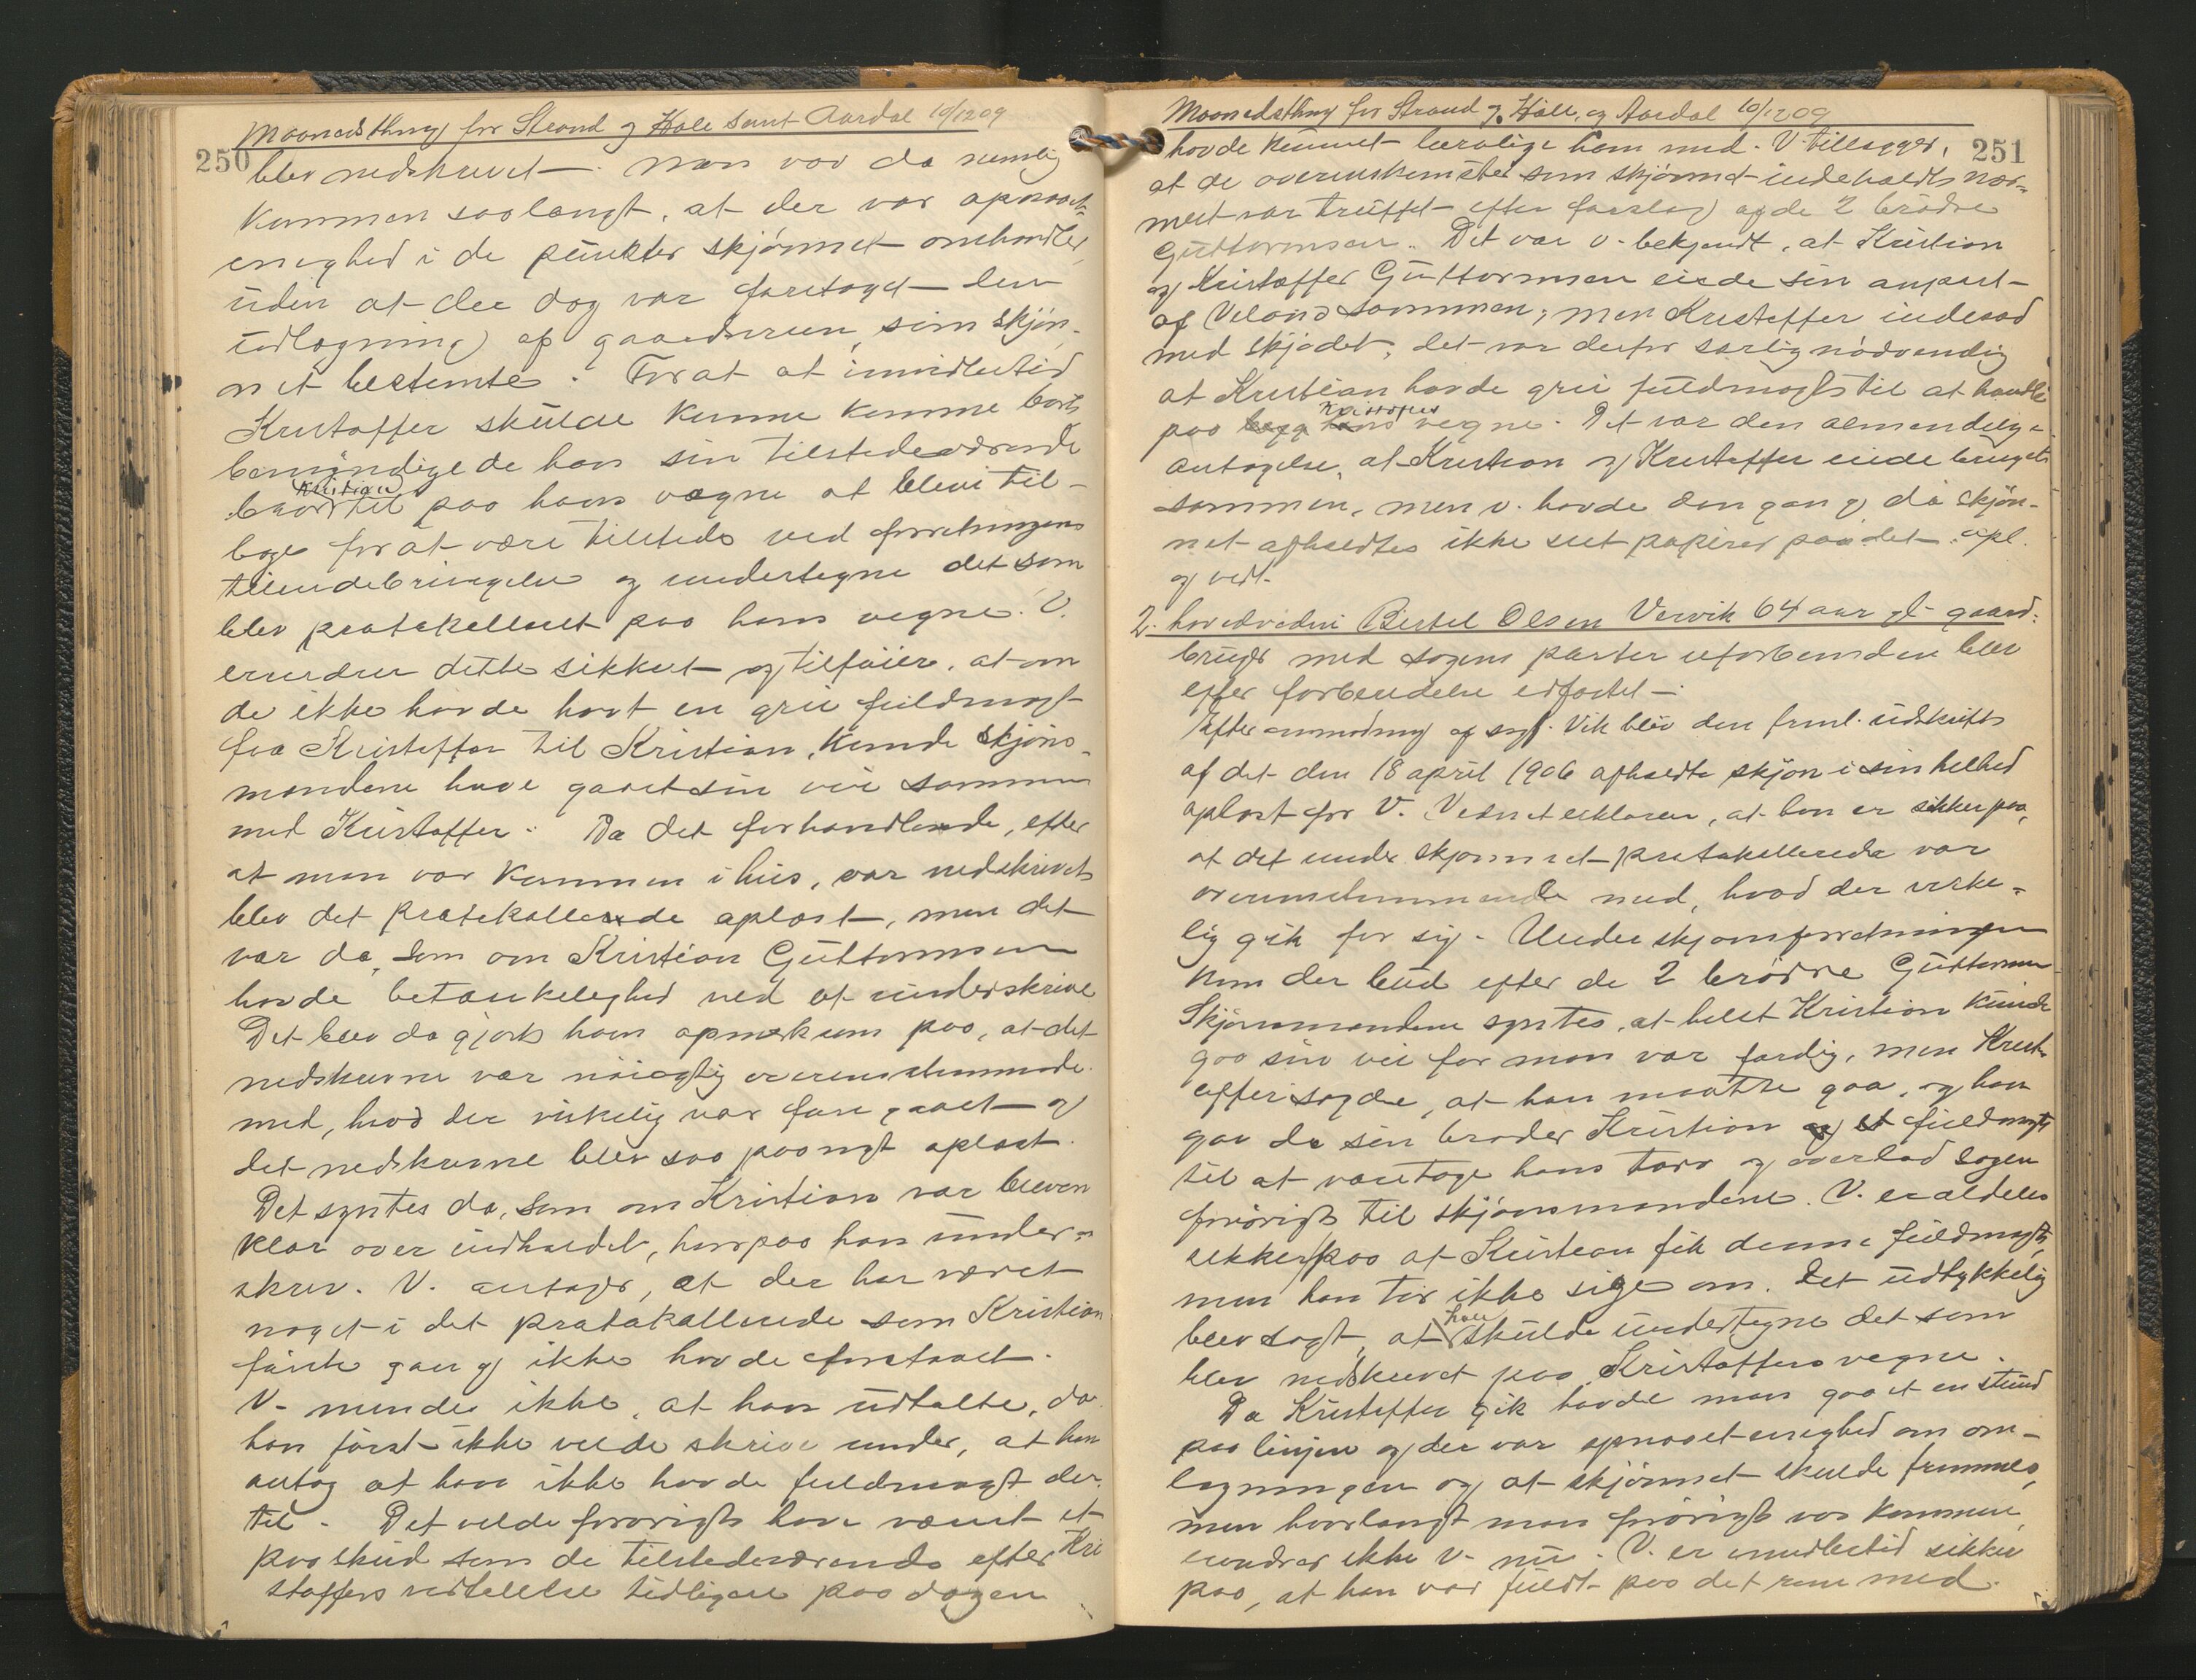 Maanedsthing for Strand og Hole samt Aardal 10/12 09
250
blev nedskrevet. Man var da nemlig
kommen saalangt, at der var opnaaet
enighed i de punkter skjønnet omhandler,
uden at der dog var foretaget den
udlægning af gaardveien, som skjøn-
net bestemte. For at at imidlertid
Kristoffer skulde kunne komme bort,
bemyndigede han sin tilstedeværende
bror Kristian til paa hans vegne at blive til-
bage for at være tilstede ved forretningens
tilendebringelse og undertegne det som
blev protokolleret paa hans vegne. V.
erindrer dette sikkert og tilføier, at om
de ikke havde havt en grei fuldmagt
fra Kristoffer til Kristian, kunde skjøns-
mændene have gaaet sin vei sammen
med Kristoffer. Da det forhandlende, efter
at man var kommen i hus, var nedskrevet,
blev det protokollerede oplæst, men det
var da, som om Kristian Guttormsen
havde betænkelighed ved at underskrive
Det blev da gjort ham opmerksom paa, at det
nedskrevne var nøiagtig overensstemmende
med, hvad der virkelig var foregaaet og
det nedskrevne blev saa paanyt oplæst.
Det syntes da, som om Kristian var bleven
klar over indholdet, hvorpaa han under-
skrev. V. antager, at der har været
noget i det protokollerede som Kristian
første gang ikke havde forstaaet.
V. mindes ikke, at han udtalte, da
han først ikke vilde skrive under, at han
antog at han ikke havde fuldmagt der-
til. Det vilde forøvrigt have været et
paaskud som de tilstedeværende efter Kri
stoffers udtalelse tidligere paa dagen
Maanedsthing for Strand og Hole, og Aardal 10/12 09
251
havde kunnet beroliget ham med. V. tillægger,
at de overenskomster som skjønnet indeholdt nær-
mest var truffet efter forslag af de 2 brødre
Guttormsen. Det var v. bekjendt, at Kristian
og Kristoffer Guttormsen eiede sin anpart
af Veland sammen; men Kristoffer indesad
med skjødet, det var derfor særlig nødvendig
at Kristian havde grei fuldmagt til at handle
paa Kristoffers vegne. Det var den almindelige
antagelse, at Kristian og Kristoffer eiede bruget
sammen, men v. havde den gang da skjøn-
net afholdtes ikke seet papirer paa det. Opl.
og vedt.
2. hovedvidne Bertel Olsen Vervik 64 aar gl. gaard-
bruger med sagens parter uforbunden blev
efter forberedelse edfæstet.
Efter anmodning af sagf. Vik blev den freml. udskrift
af det den 18 april 1906 afholdte skjøn i sin helhed
oplæst for V. Vidnet erklærer, at han er sikker paa,
at det under skjønnet protokollerede var
overensstemmende med, hvad der virke-
lig gik for sig. Under skjønsforretningen
kom der bud efter de 2 brødre Guttormsen
Skjønsmændene syntes, at helst Kristian kunde
gaa sin vei før man var færdig, men Krist-
offer sagde, at han maatte gaa, og han
gav da sin broder Kristian fuldmagt
til at varetage hans tarv og overlod sagen
forøvrigt til skjønsmændene. V. er aldeles
sikker paa at Kristian fik denne fuldmagt,
men han tør ikke sige om det udtykkelig
blev sagt, at han skulde undertegne det som
blev nedskrevet paa Kristoffers vegne.
Da Kristoffer gik havde man gaaet en stund
paa linjen og der var opnaaet enighed om om-
lægningen og at skjønnet skulde fremmes,
men hvorlangt man forøvrigt var kommen,
erindrer ikke v. nu. V. er imidlertid sikker
paa, at han var fuldt paa det rene med